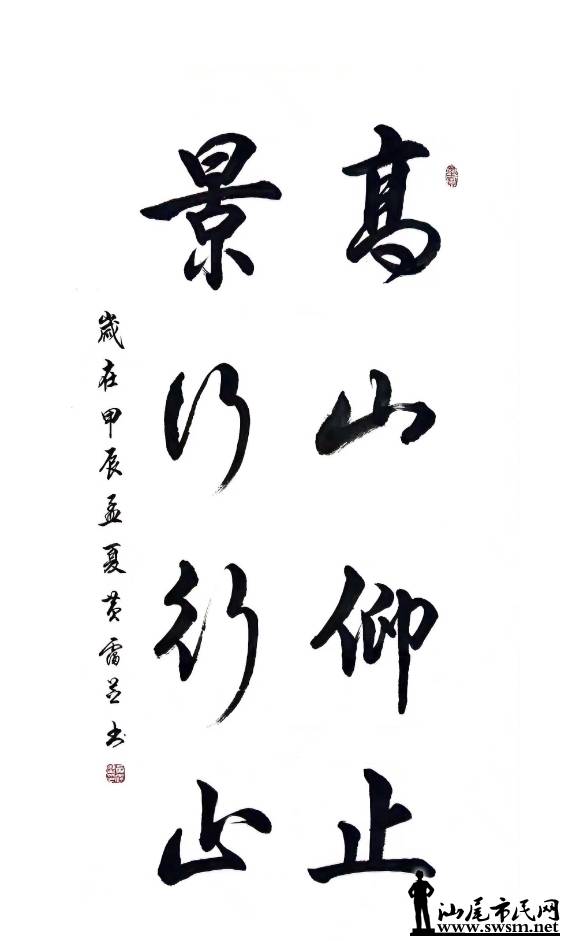 高山仰止
景行行止
歲在甲辰孟夏黄雷芝书
汕尾市民网
www.swsm.net